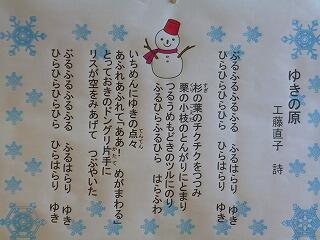 ゆきの原
工藤直子 詩
ぶるふるふるふる ふるはらり ゆき
ひらひらひらひら ひらはらり ゆき
杉の葉のチクチクをつつみ
すぎ
栗の小枝のとんがりにとまり
つるうめもどきのツルにのり
ふるひらふるひら はらふわ
いちめんにゆきの点々
てんてん
あふれあふれて「ああ めがまわる」
とっておきのドングリ片手に
かたて
リスが空をみあげて つぶやいた
ぶるふるふるふる ふるはらり ゆき
ひらひらひらひら ひらはらり ゆき